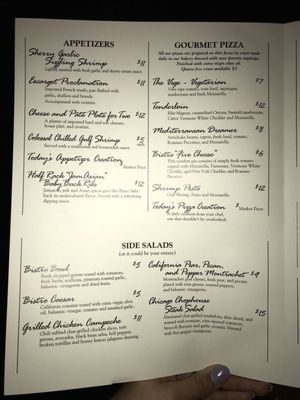 APPETIZERS
Sherry Garlic
Sizzling Shrimp $11
Lightly sautéed with fresh garlic and sherry cream sauce.
Escargot Proclamation $11
Imported French snails, pan flashed with
garlic, shallots and brandy.
Accompanied with crostini.
Cheese and Paté Plate for Two $12
A platter of imported hard and soft cheeses,
house pâté, and crostini.
Colossal Chilled Gulf Shrimp $5
Served with a traditional and horseradish sauce. each
Today's Appetizer Creation
Market Price
Half Rack "Jam Asian"
Baby Back Ribs $12
Jamaican jerk and Asian spices give this Baby
back its multicultural flavor. Served with a refreshing
dipping sauce.
GOURMET PIZZA
All our pizzas are prepared on thin focaccia crust made
daily in our bakery dressed with your favorite toppings.
Finished with extra virgin olive oil.
Gluten free crust available $3
The Vege - Vegetarian $7
Vine ripe tomato, torn basil, asparagus,
mushrooms and fresh Mozzarella.
Tenderloin $12
Filet Mignon, caramelized Onions, Sautéed mushrooms,
Cabot Vermont White Cheddar and Mozzarella.
Mediterranean Dreamer $8
Artichoke hearts, capers, fresh basil, tomato,
Romano Pecorino, and Mozzarella.
Bistro "Five Cheese" $6
This comfort pie consists of simply fresh tomato
topped with Mozzarella, Parmesan, Vermont White
Cheddar, aged New York Cheddar, and Romano
Pecorino.
Shrimp Pesto $12
Gulf Shrimp, Pesto, and Mozzarella.
Today's Pizza Creation $ Market Price
A daily creation from your chef,
one that shouldn't be overlooked.
SIDE SALADS
(or it could be your entree)
Bistro Bowl $5
Fresh chopped greens tossed with tomatoes,
fresh herbs, scallions, pimentos toasted garlic,
balsamic vinaigrette and dried fruits.
Bistro Caesar $5
California romaine tossed with extra virgin olive
oil, balsamic vinegar, tomato and smashed garlic.
Grilled Chicken Campeche $11
Chili rubbed char-grilled chicken slices, torn
greens, avocados, black bean salsa, bell peppers,
broken tortillas and honey lemon jalapeno dressing
California Pear, Pecan,
and Pepper Montrachet $9
Montrachet goat cheese, fresh pear, and pecans
plated with torn greens, roasted peppers,
and balsamic vinegarette.
Chicago Chophouse
Steak Salad $15
Marinated char-grilled tenderloin, thin sliced, and
tossed with romaine, vine ripened tomatoes,
broccoli florettes and garlic crostini. Dressed
with five pepper vinaigrette.